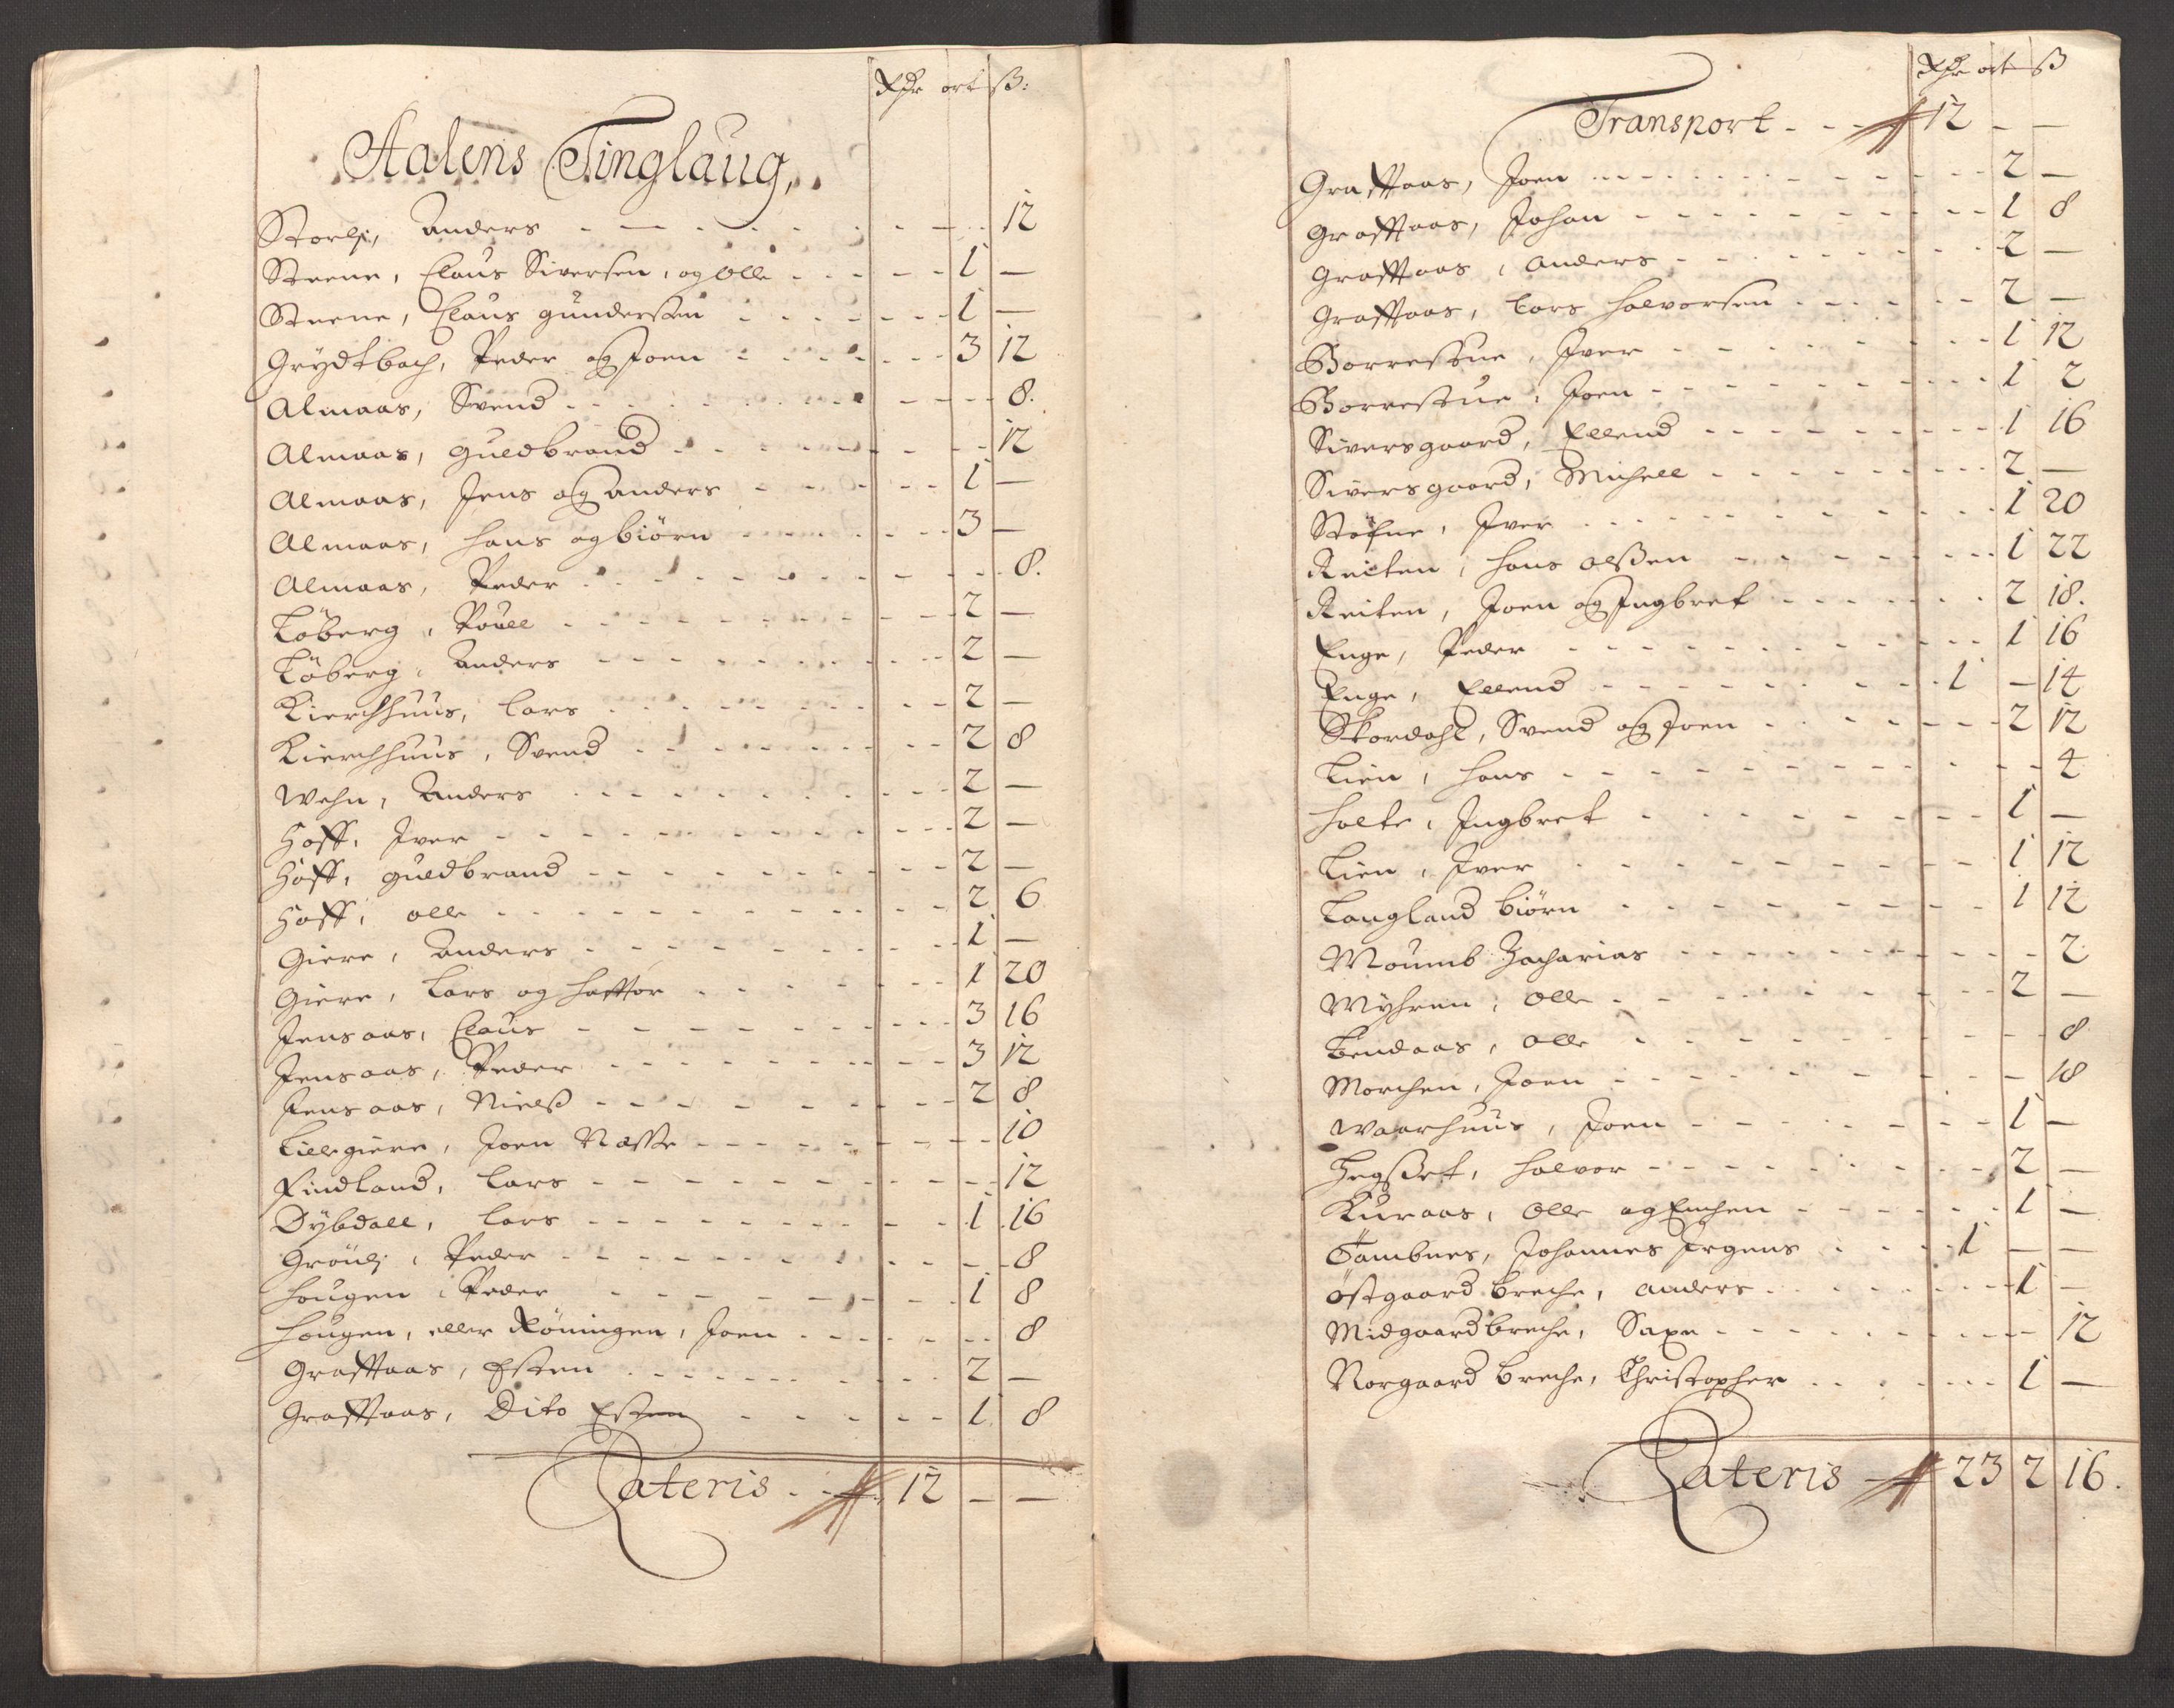 Rdr ort ß:
Aalens Tinglaug,
Storli, Anders - - - 12
Steene, Claus Siversen, og Olle - - - 1 —
Steene, Claus Gundersen - - - 1 —
Grydtbach, Peder og Joen - - - 3 12
Almaas, Svend - - - 8.
Almaas, Guldbrand - - - 12
Almaas, Jens og Anders - - - 1 —
Almaas, Hans og Biörn - - - 3 —
Almaas, Peder - - - 8.
Löberg, Povell - - - 2 —
Löberg, Anders - - - 2 —
Kierchhuus, Lars - - - 2 —
Kierchhuus, Svend - - - 2 8
Wehn, Anders - - - 2 —
Hoff, Iver - - - 2 —
Hoff, Guldbrand - - - 2 —
Hoff, Olle - - - 2 6
Giere, Anders - - - 1 —
Giere, Lars og - - - 1 20
Jensaas, Claus - - - 3 16
Jensaas, Peder - - - 3 12
Jensaas, Nielß - - - 2 8
Lillegiere, Joen Næsse - - - 10
Findland, Lars - - - 12
Dybdall, Lars - - - 1 16
Gröuli, Peder - - - 8
Hougen, Peder - - - 1 8
Hougen, eller Röningen, Joen - - - 8
Graffaas, Esten - - - 2 —
Graffaas, Dito Esten - - - 1 8
Lateris - - 12 — —
Rdr ort ß
Transport - - - 12 — —
Graffaas, Joen - - - 2 —
Graffaas, Johan - - - 1 8
Graffaas, Anders - - - 2 —
Graffaas, Lars Halvorsen - - - 2 —
Borrestue, Iver - - - 1 12
Borrestue, Joen - - - 1 2
Siversgaard, Ellend - - - 1 16
Siversgaard, Michell - - - 2 —
Stöfne, Iver - - - 1 20
Reiten, Hans Olßen - - - 1 22
Reiten, Joen og Ingbret - - - 2 18.
Enge, Peder - - - 1 16
Enge, Ellend - - - 1 — 14
Skordahl, Svend og Joen - - - 2 12
Lien, Hans - - - 4
Holte, Ingbret - - - 1 —
Lien, Iver - - - 1 12
Langland Biörn - - - 1 12
Moumb Zacharias - - - 2
Myhren, Olle - - - 2 —
Bendaas, Olle - - - 8
Morchen, Joen - - - 18
Waarhuus, Joen - - - 1 —
Hegßet, Halvor - - - 2 —
Kuraas, Olle og - - - 1 —
Tambnes, Johannes Jrgens - - - 1 — —
Östgaard breche, Anders - - - 1 —
Midgaardbreche, Saxe - - - 12
Norgaard breche, Christopher - - - 1 —
Lateris - 23 2 16.